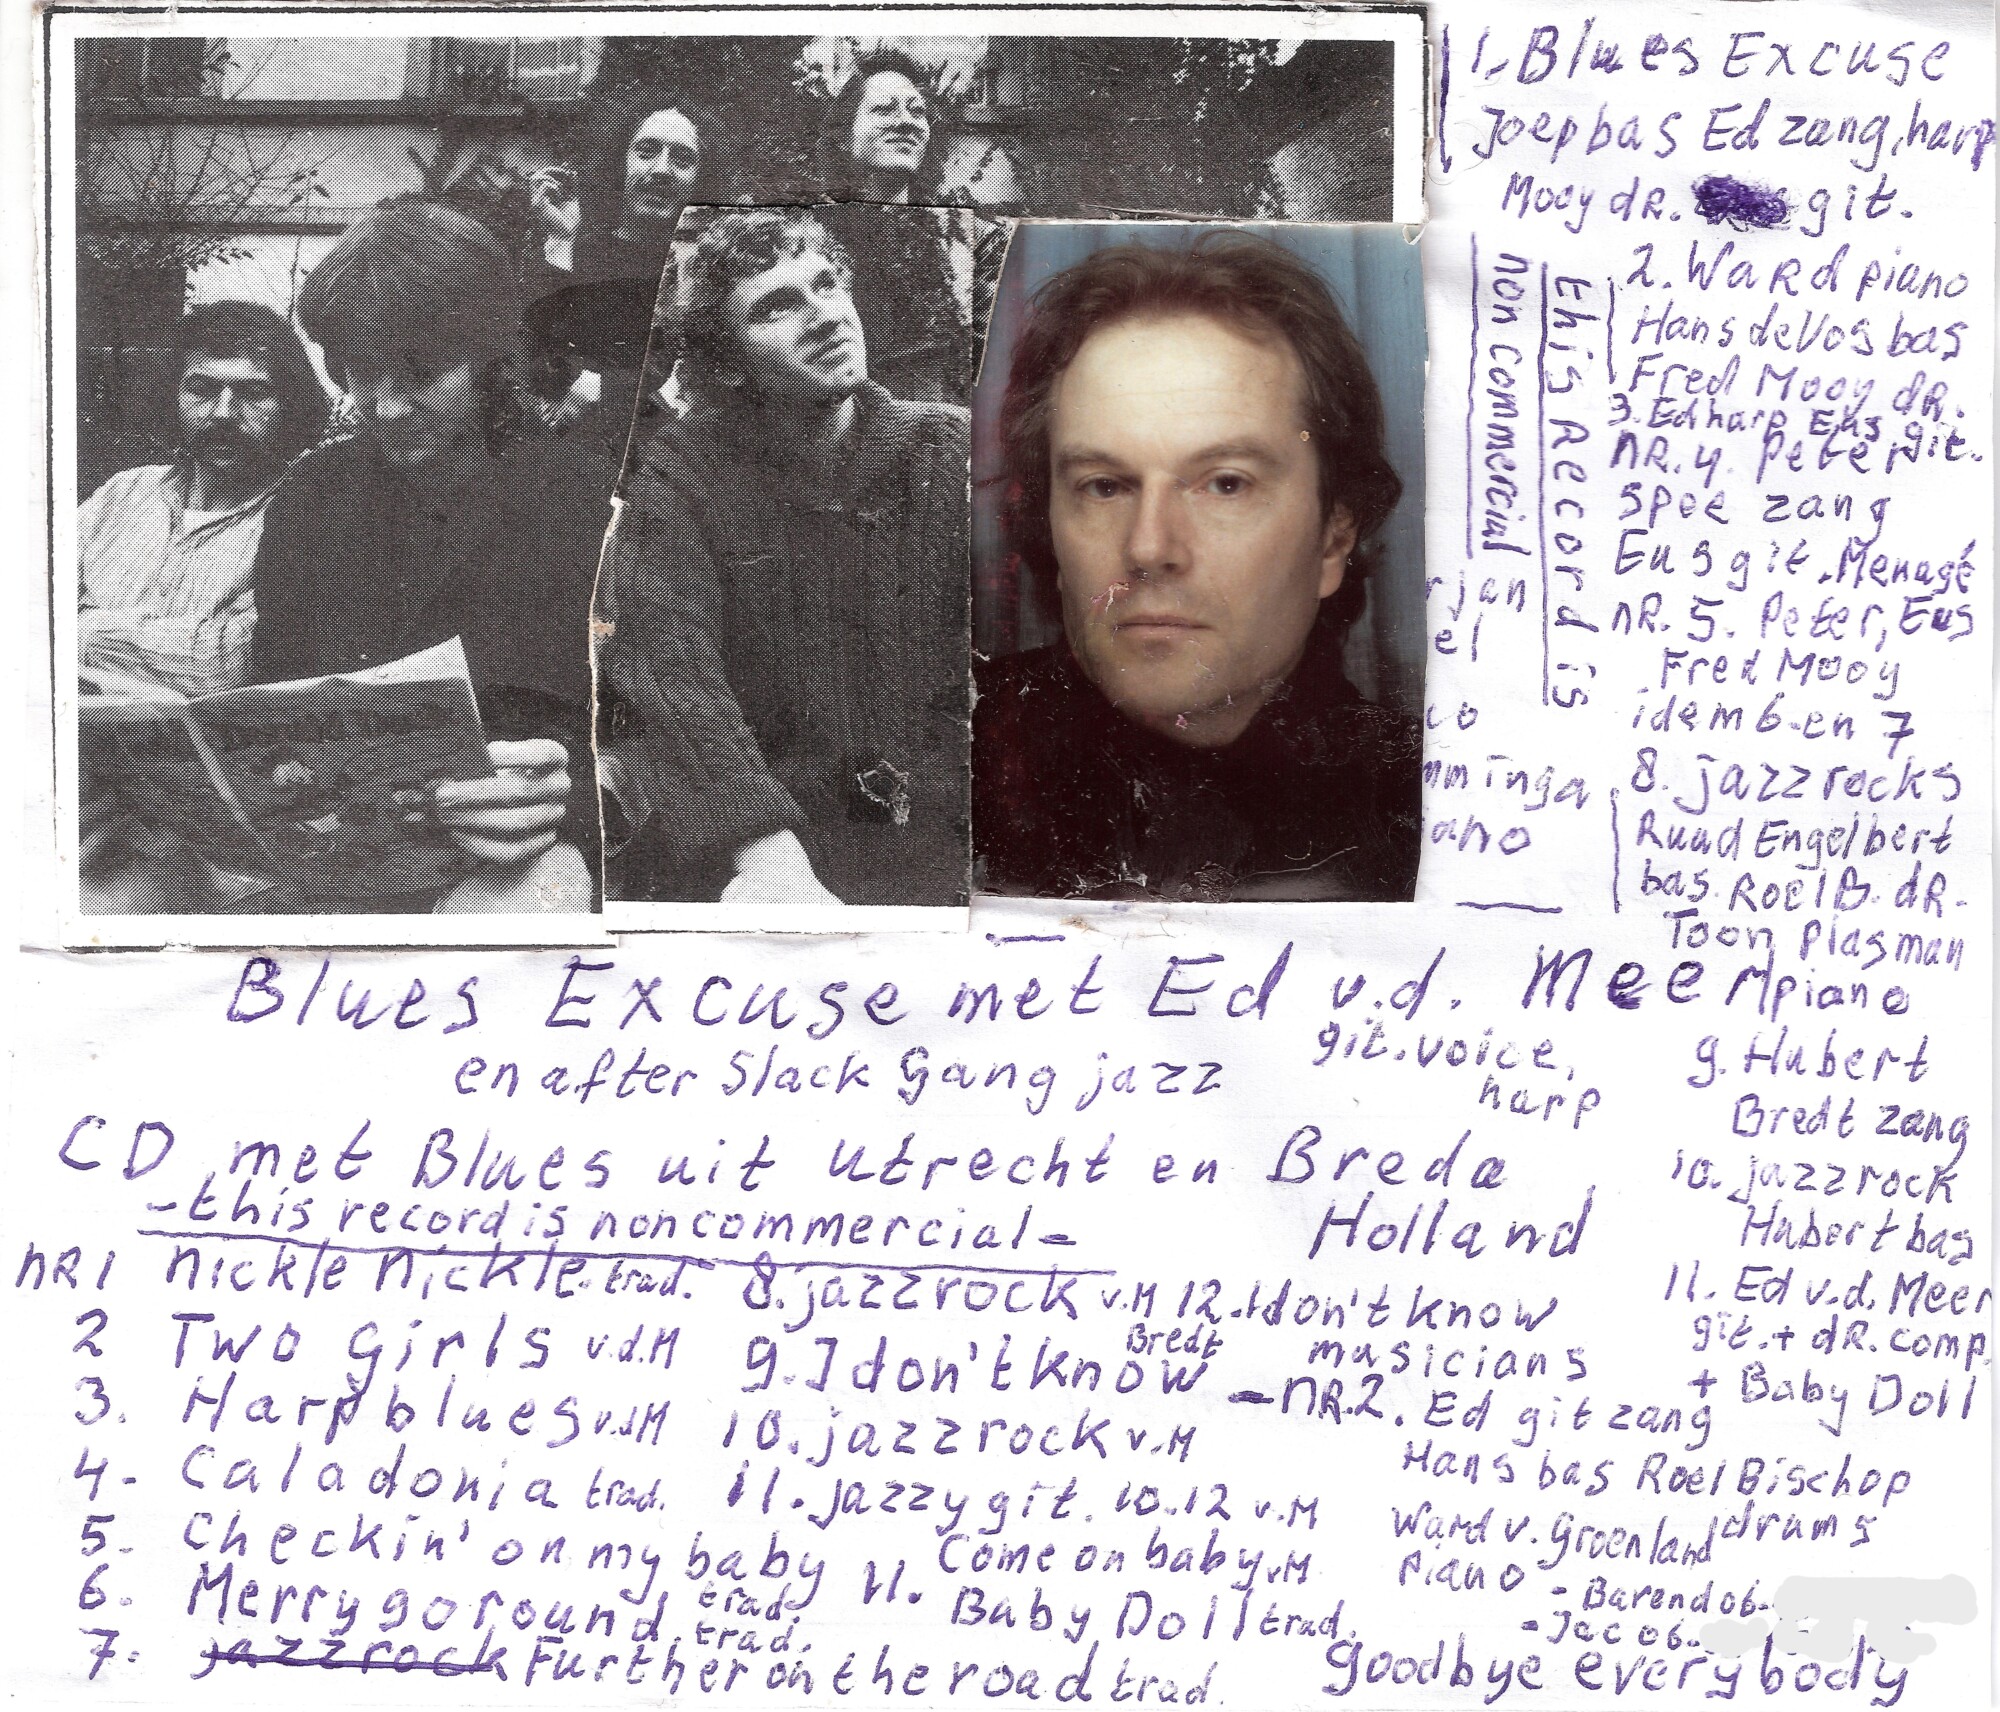 1. Blues Excuse
Joep bas Ed zang, harp
Mooy dR. git.
2. Ward piano
Hans de Vos bas
Fred Mooy dR.
3. Ed harp Eus git.
nR. 4. Peter
Spee zang
Eus git. Menagé
nR. 5. Peter, Eus
Fred Mooy
idem 6 en 7
8. jazzrocks
Ruud Engelbert
bas. Roel B. dR.
Toon Plasman
piano
9. Hubert
Bredt zang
10. jazzrock
Hubert bas
11. Ed v.d. Meer
git. + dR. comp.
+ Baby Doll
this Record is
non commercial
rjan
el
co
mminga
iano
Blues Excuse met Ed v.d. Meer
git. voice,
harp
en after Slack Gang jazz
CD met Blues uit Utrecht en Breda
Holland
-this record is non commercial-
nR 1 Nickle Nickle. trad.
2 Two Girls v.d.M
3. Harp blues v.d.M
4- Caladonia trad.
5- Checkin' on my baby trad.
6. Merry go round. trad.
7. jazzrock Further on the road trad.
8. jazzrock v.M
9. I don't know Bredt
10. jazzrock v.M
11. jazzy git. 10.12 v.M
Come on baby v.M
11. Baby Doll trad.
12. I don't know
musicians
- nR.2. Ed git zang
Hans bas Roel Bischop
drums
Ward v. Groenland
piano
- Barend 06-
- Jacob-
Goodbye everybody